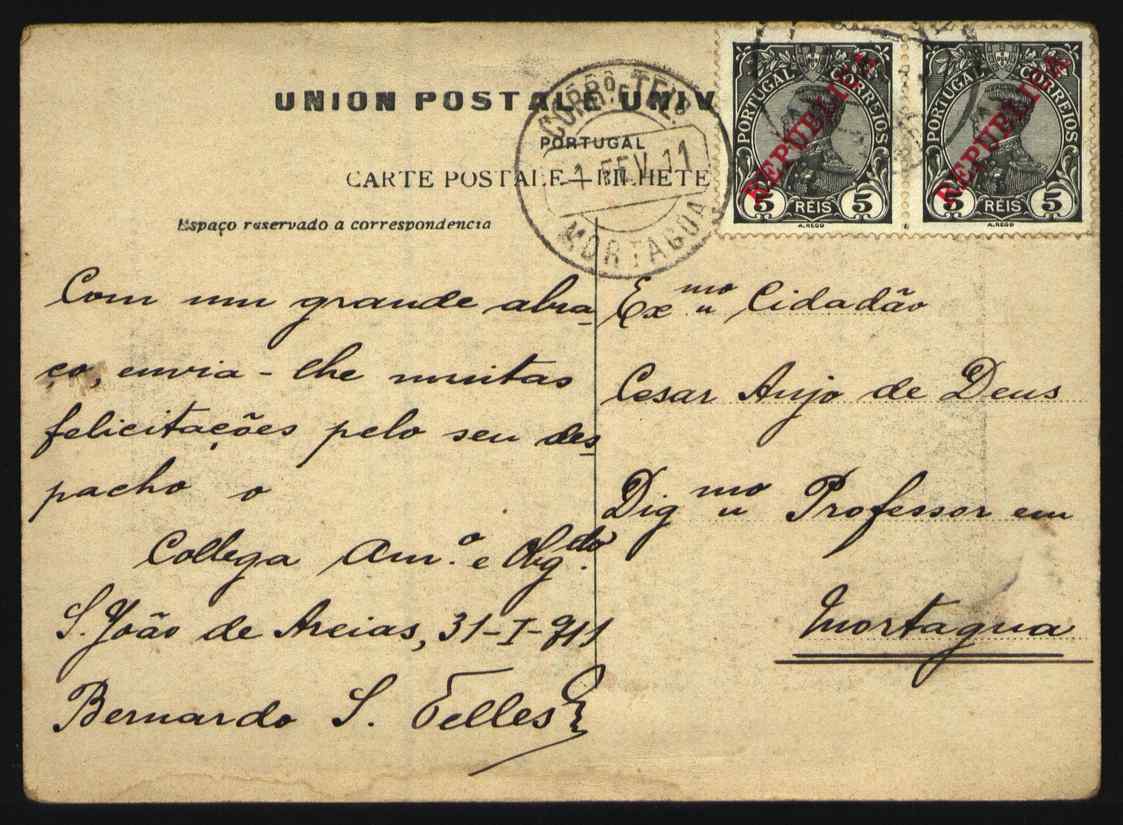 UNION POSTALE UNIV
PORTUGAL
CARTE POSTALE — BILHETE
Espaço reservado a correspondencia
CORRO. E TELO.
1 FEV. 11
MORTAGOA
PORTUGAL CORREIOS
REPUBLICA
5 REIS 5
A. REGO
PORTUGAL CORREIOS
REPUBLICA
5 REIS 5
A. REGO
Com um grande abra-
ço, envia-lhe muitas
felicitações pelo seu des-
pacho o
Collega Am.º e Obg.do
S. João de Areias, 31-I-911
Bernardo S. Telles
Exmo Cidadão
Cesar Anjo de Deus
Digmo Professor em
Mortagua